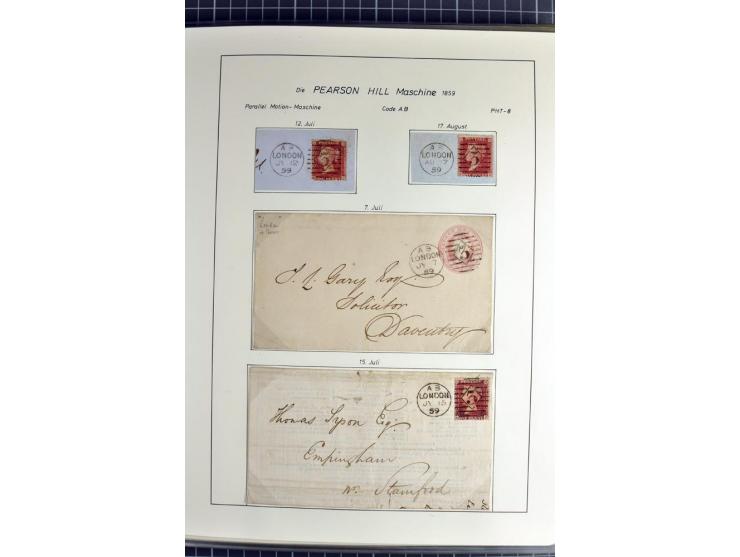 Die PEARSON HILL Maschine 1859
Parallel Motion-Maschine Code AB PHT-8
12. Juli 17. August
LONDON
JY 12
59
LONDON
AU 17
59
7. Juli
LONDON
JY 7
59
Solicitor
Daventry
15. Juli
AB
LONDON
JY 15
59
Thomas Syson Esq.
Empingham
Nr. Stamford